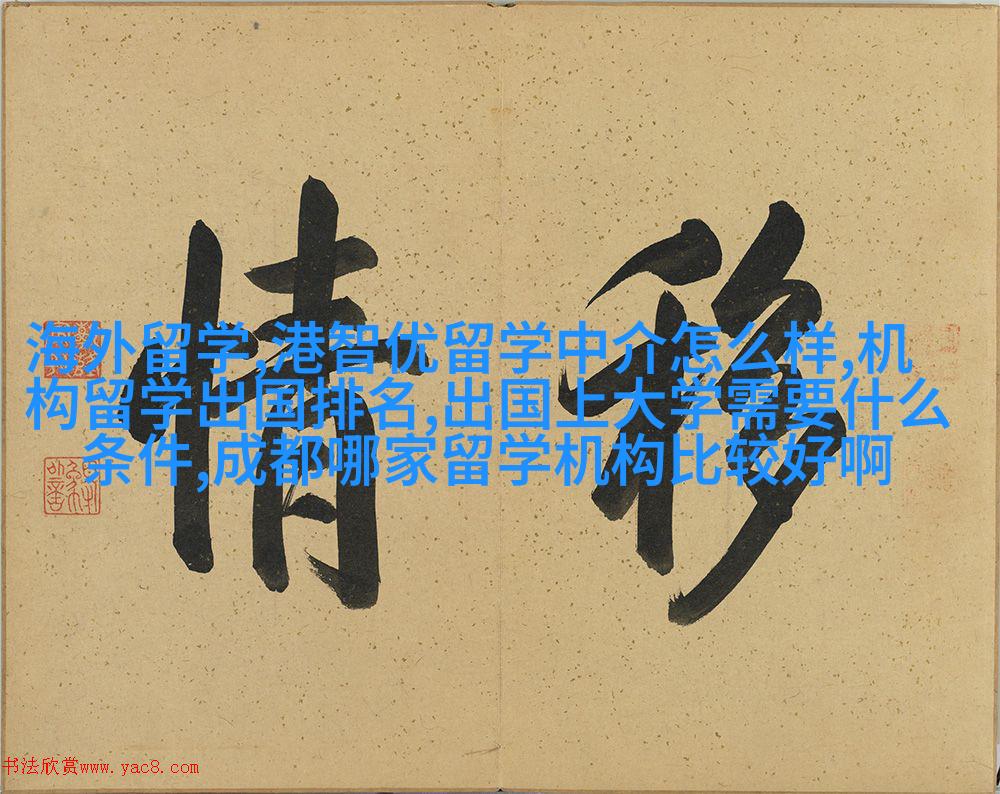 移情
海外留学,港智优留学中介怎么样,机
构留学出国排名,出国上大学需要什么
条件,成都哪家留学机构比较好啊
书法欣赏www.yac8.com